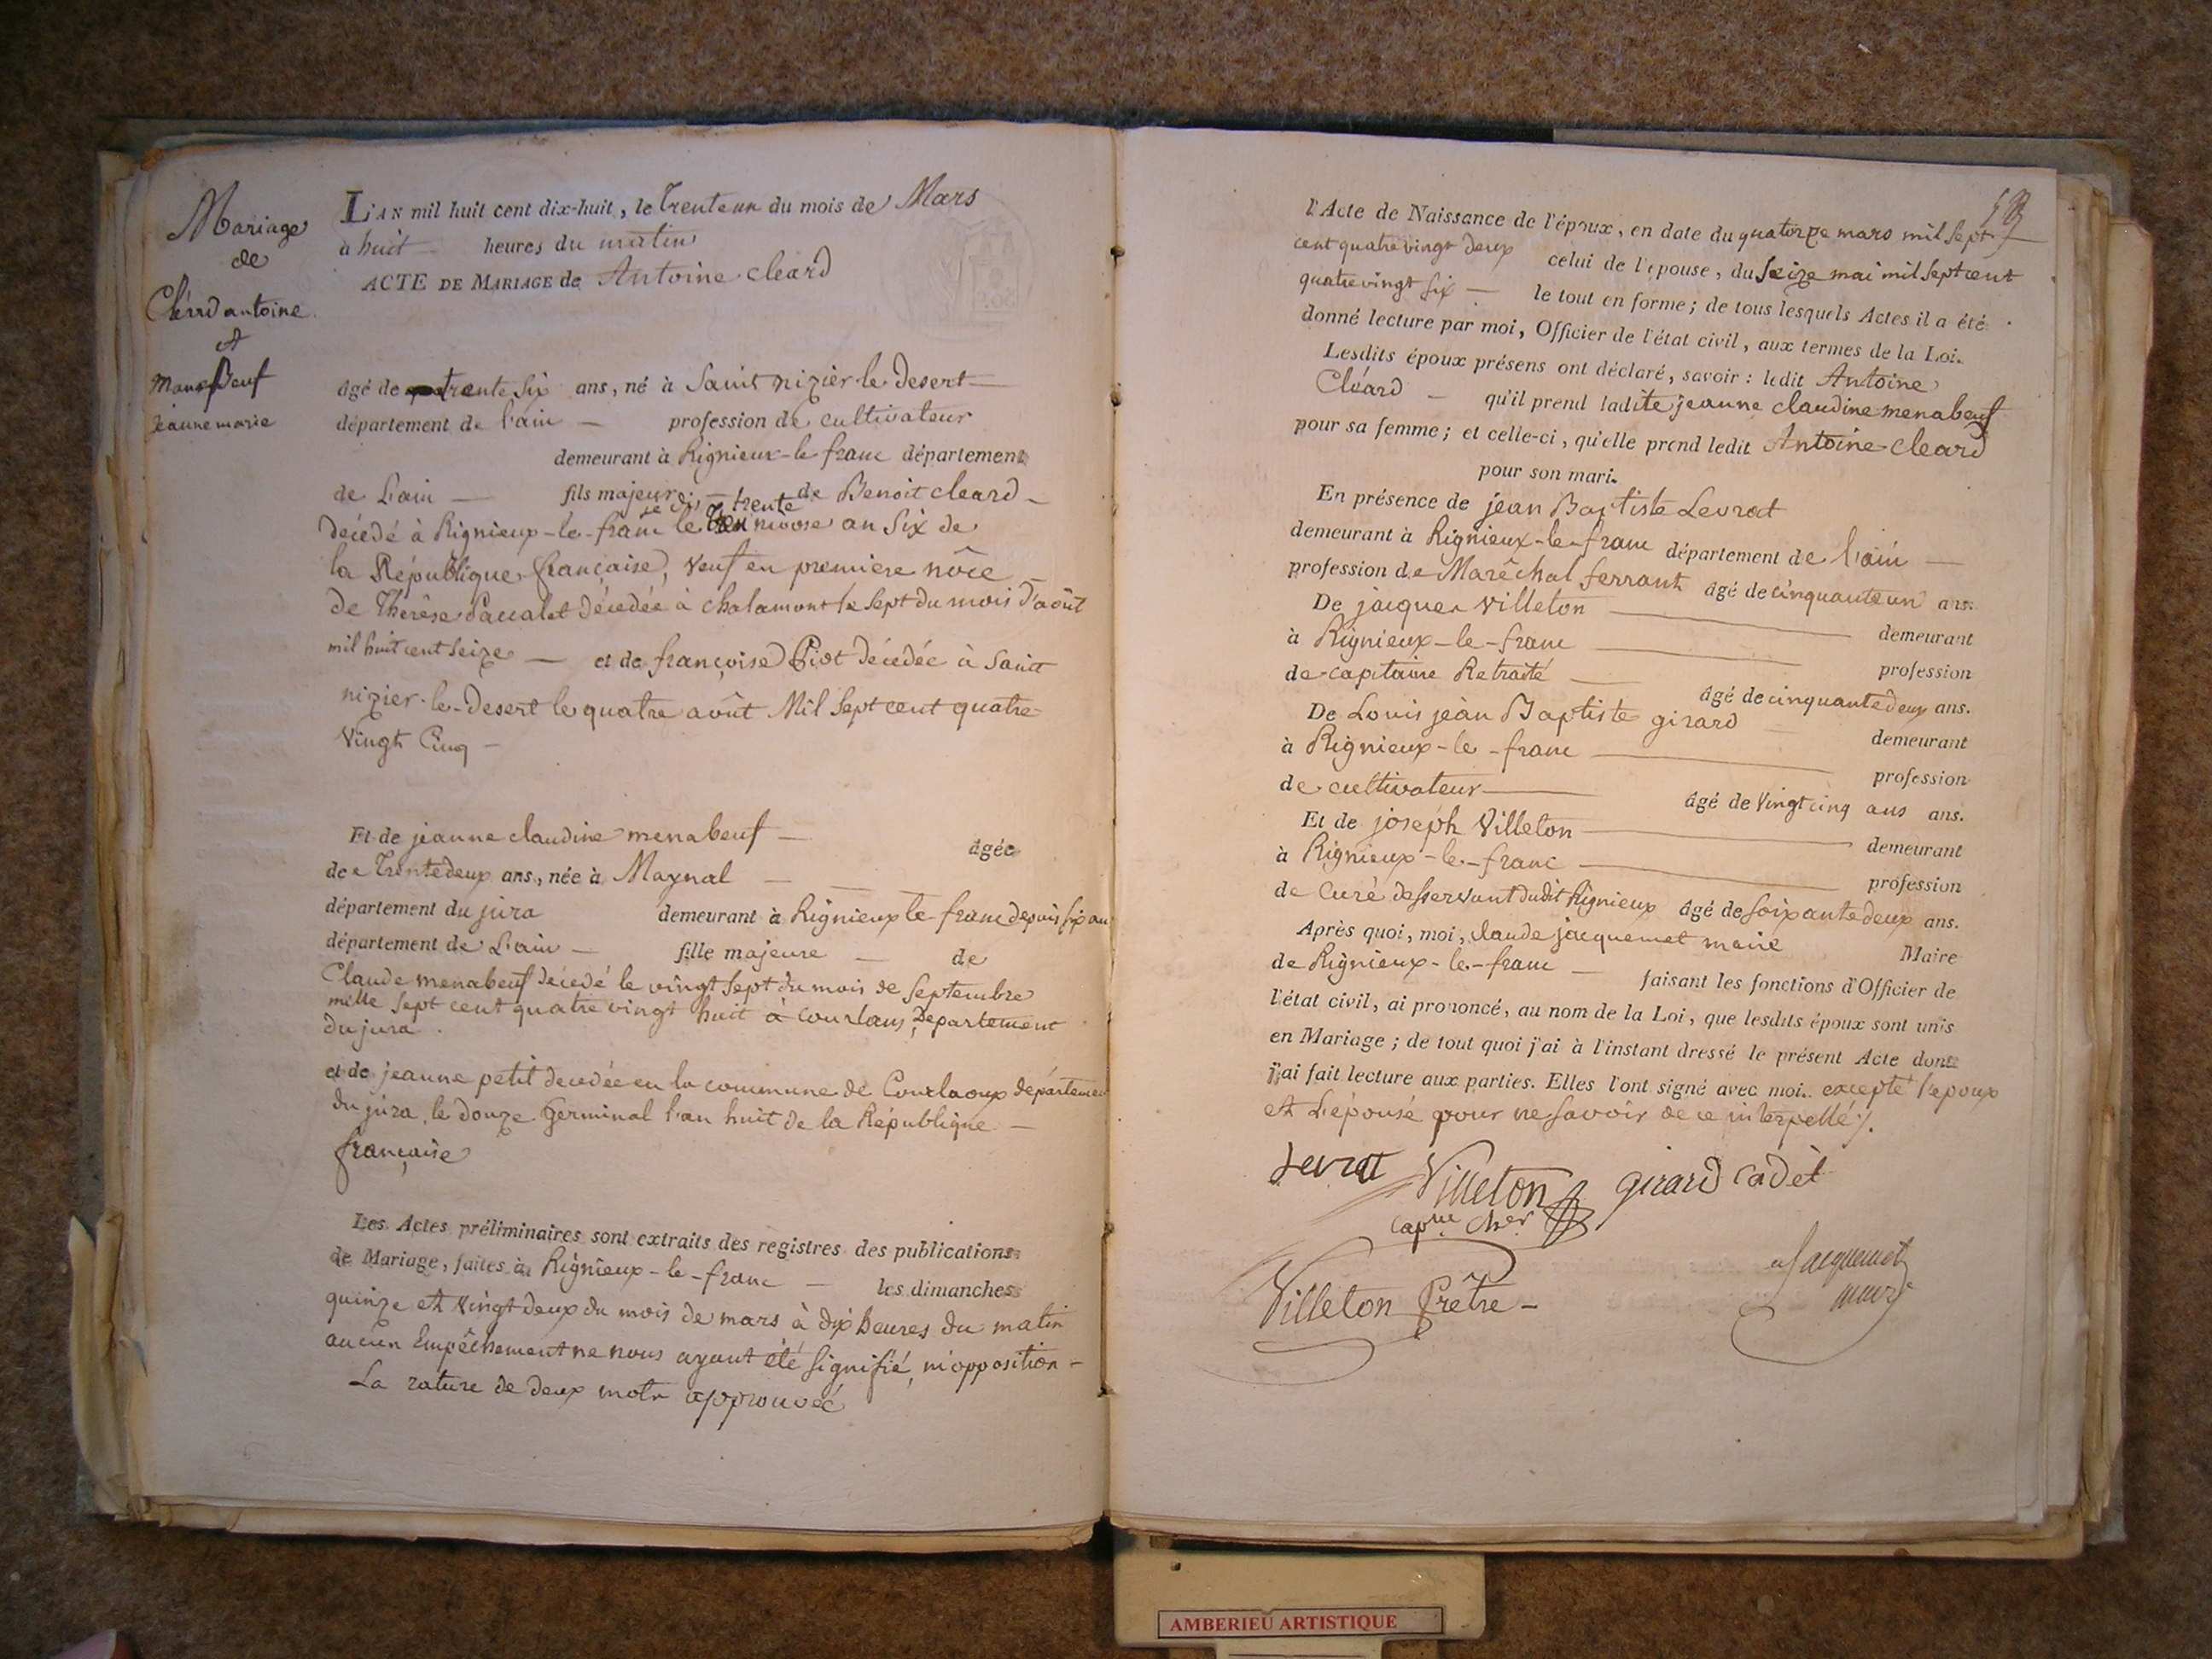 Mariage
de
Cléard antoine
et
Menabeuf
jeanne marie
L'AN mil huit cent dix-huit, le trente un du mois de Mars
à huit heures du matin
ACTE DE MARIAGE de Antoine cleard
âgé de trente six ans, né à Saint nizier le Desert
département de l'ain profession de cultivateur
demeurant à Rignieux-le franc département
de L'ain fils majeur de Benoit cleard
trente
décédé à Rignieux-le-franc le nivose an Six de
la République française, veuf en premiere nôce
de Thérèse Paccalet décédée à chalamont le sept du mois d'août
mil huit cent seize et de françoise Piot décédée à Saint
nizier-le-Desert le quatre août Mil Sept cent quatre
Vingt Cinq
Et de jeanne claudine menabeuf âgée
de Trente deux ans, née à Maynal
département du jura demeurant à Rignieux le franc depuis six an
département de L'ain fille majeure de
Claude menabeuf décédé le vingt sept du mois de Septembre
mille sept cent quatre vingt huit à courlans, Departement
du jura.
et de jeanne petit decedée en la commune de Courlaoux département
du jura, le douze Germinal l'an huit de la République
française
Les Actes préliminaires sont extraits des registres des publications
de Mariage, faites à Rignieux-le-franc les dimanches
quinze et vingt deux du mois de mars à dix heures du matin
aucun Empêchement ne nous ayant été signifié, ni opposition
La rature de deux mots approuvée
l'Acte de Naissance de l'époux, en date du quatorze mars mil sept
cent quatre vingt deux celui de l'épouse, du Seize mai mil sept cent
quatre vingt six le tout en forme; de tous lesquels Actes il a été
donné lecture par moi, Officier de l'état civil, aux termes de la Loi.
Lesdits époux présens ont déclaré, savoir: ledit Antoine
Cléard qu'il prend ladite jeanne claudine menabeuf
pour sa femme; et celle-ci, qu'elle prend ledit Antoine cleard
pour son mari.
En présence de jean Baptiste Levrat
demeurant à Rignieux-le-franc département de l'ain
profession de Maréchal ferrant âgé de cinquante un ans.
De jacques villeton demeurant
à Rignieux-le-franc profession
de capitaine Retraité âgé de cinquante deux ans.
De Louis jean Baptiste girard demeurant
à Rignieux-le-franc profession
de cultivateur âgé de Vingt cinq ans ans.
Et de joseph Villeton demeurant
à Rignieux-le-franc profession
de Curé desservant dudit Rignieux âgé de soixante deux ans.
Après quoi, moi, claude jacquemet maire Maire
de Rignieux-le-franc faisant les fonctions d'Officier de
l'état civil, ai prononcé, au nom de la Loi, que lesdits époux sont unis
en Mariage; de tout quoi j'ai à l'instant dressé le présent Acte dont
j'ai fait lecture aux parties. Elles l'ont signé avec moi. excepté l'epoux
et L'épouse pour ne savoir de ce interpellé /.
Levrat Villeton girard cadet
capne cher
Jacquemet
maire
Villeton Prêtre
AMBERIEU ARTISTIQUE